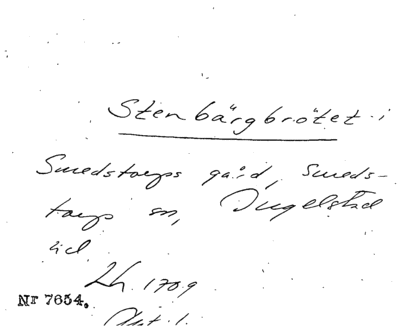 Stenbärgbrötet i
Smedstorps gård, Smeds-
torps sn, Ingelstad
hd.
Lh. 1709
Nr 7654.
Akt 1.